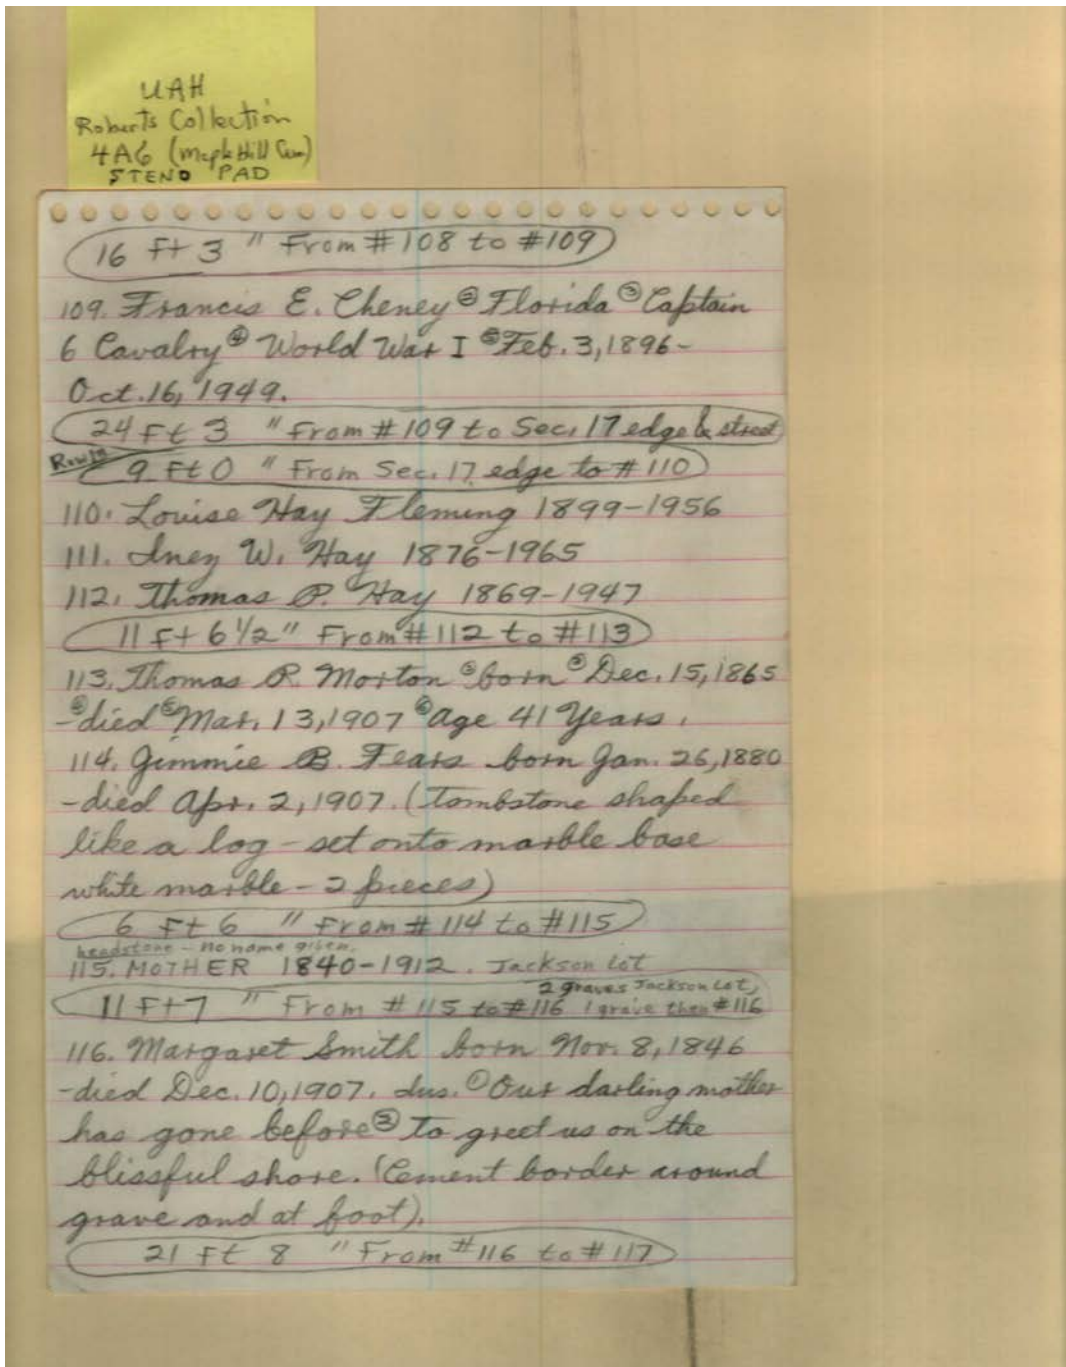 UAH
Roberts Collection
4A6 (Maple Hill Cem)
STENO PAD
16 Ft 3 " From #108 to #109
109. Francis E. Cheney ② Florida ③ Captain
6 Cavalry ④ World War I ⑤ Feb. 3, 1896-
Oct. 16, 1949.
24 Ft 3 " From #109 to Sec. 17 edge & street
9 Ft 0 " From Sec. 17 edge to #110
110. Louise Hay Fleming 1899-1956
111. Inez W. Hay 1876-1965
112. Thomas P. Hay 1869-1947
11 Ft 6 1/2" From #112 to #113
113. Thomas P. Morton ② born ③ Dec. 15, 1865
④ -died ⑤ Mar. 13, 1907 ⑥ Age 41 Years.
114. Jimmie B. Fears born Jan. 26, 1880
-died Apr. 2, 1907. (Tombstone shaped
like a log - set onto marble base
white marble - 2 pieces)
6 Ft 6 " From #114 to #115
headstone - No name given.
115. MOTHER 1840-1912. Jackson Lot
2 graves Jackson Lot,
11 Ft 7 " From #115 to #116 1 grave then #116
116. Margaret Smith born Nov. 8, 1846
-died Dec. 10, 1907. Ins. ① Our darling mother
has gone before ② To greet us on the
blissful shore. (Cement border around
grave and at foot).
21 Ft 8 " From #116 to #117